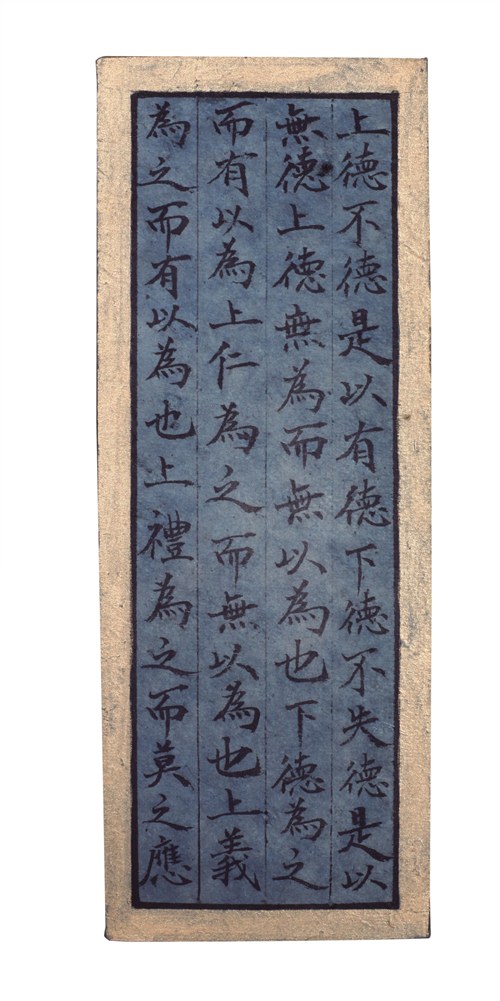 上德不德是以有德下德不失德是以
無德上德無為而無以為也下德為之
而有以為上仁為之而無以為也上義
為之而有以為也上禮為之而莫之應